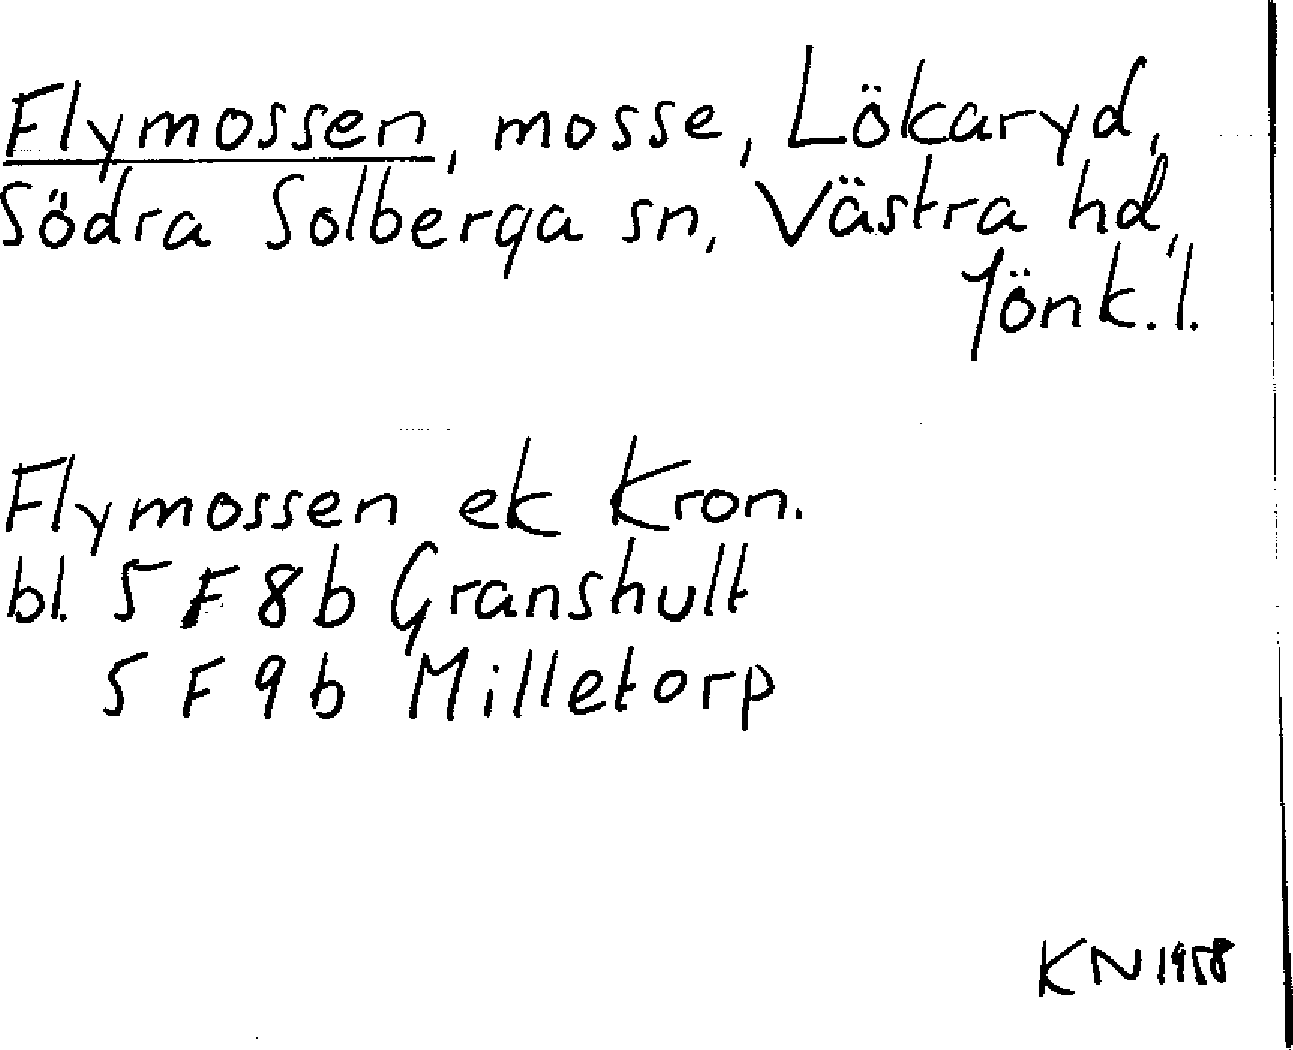 Flymossen, mosse, Lökaryd,
Södra Solberga sn, Västra hd,
Jönk.l.
Flymossen ek Kron.
bl. 5 F 8 b Granshult
5 F 9 b Milletorp
KN 1958